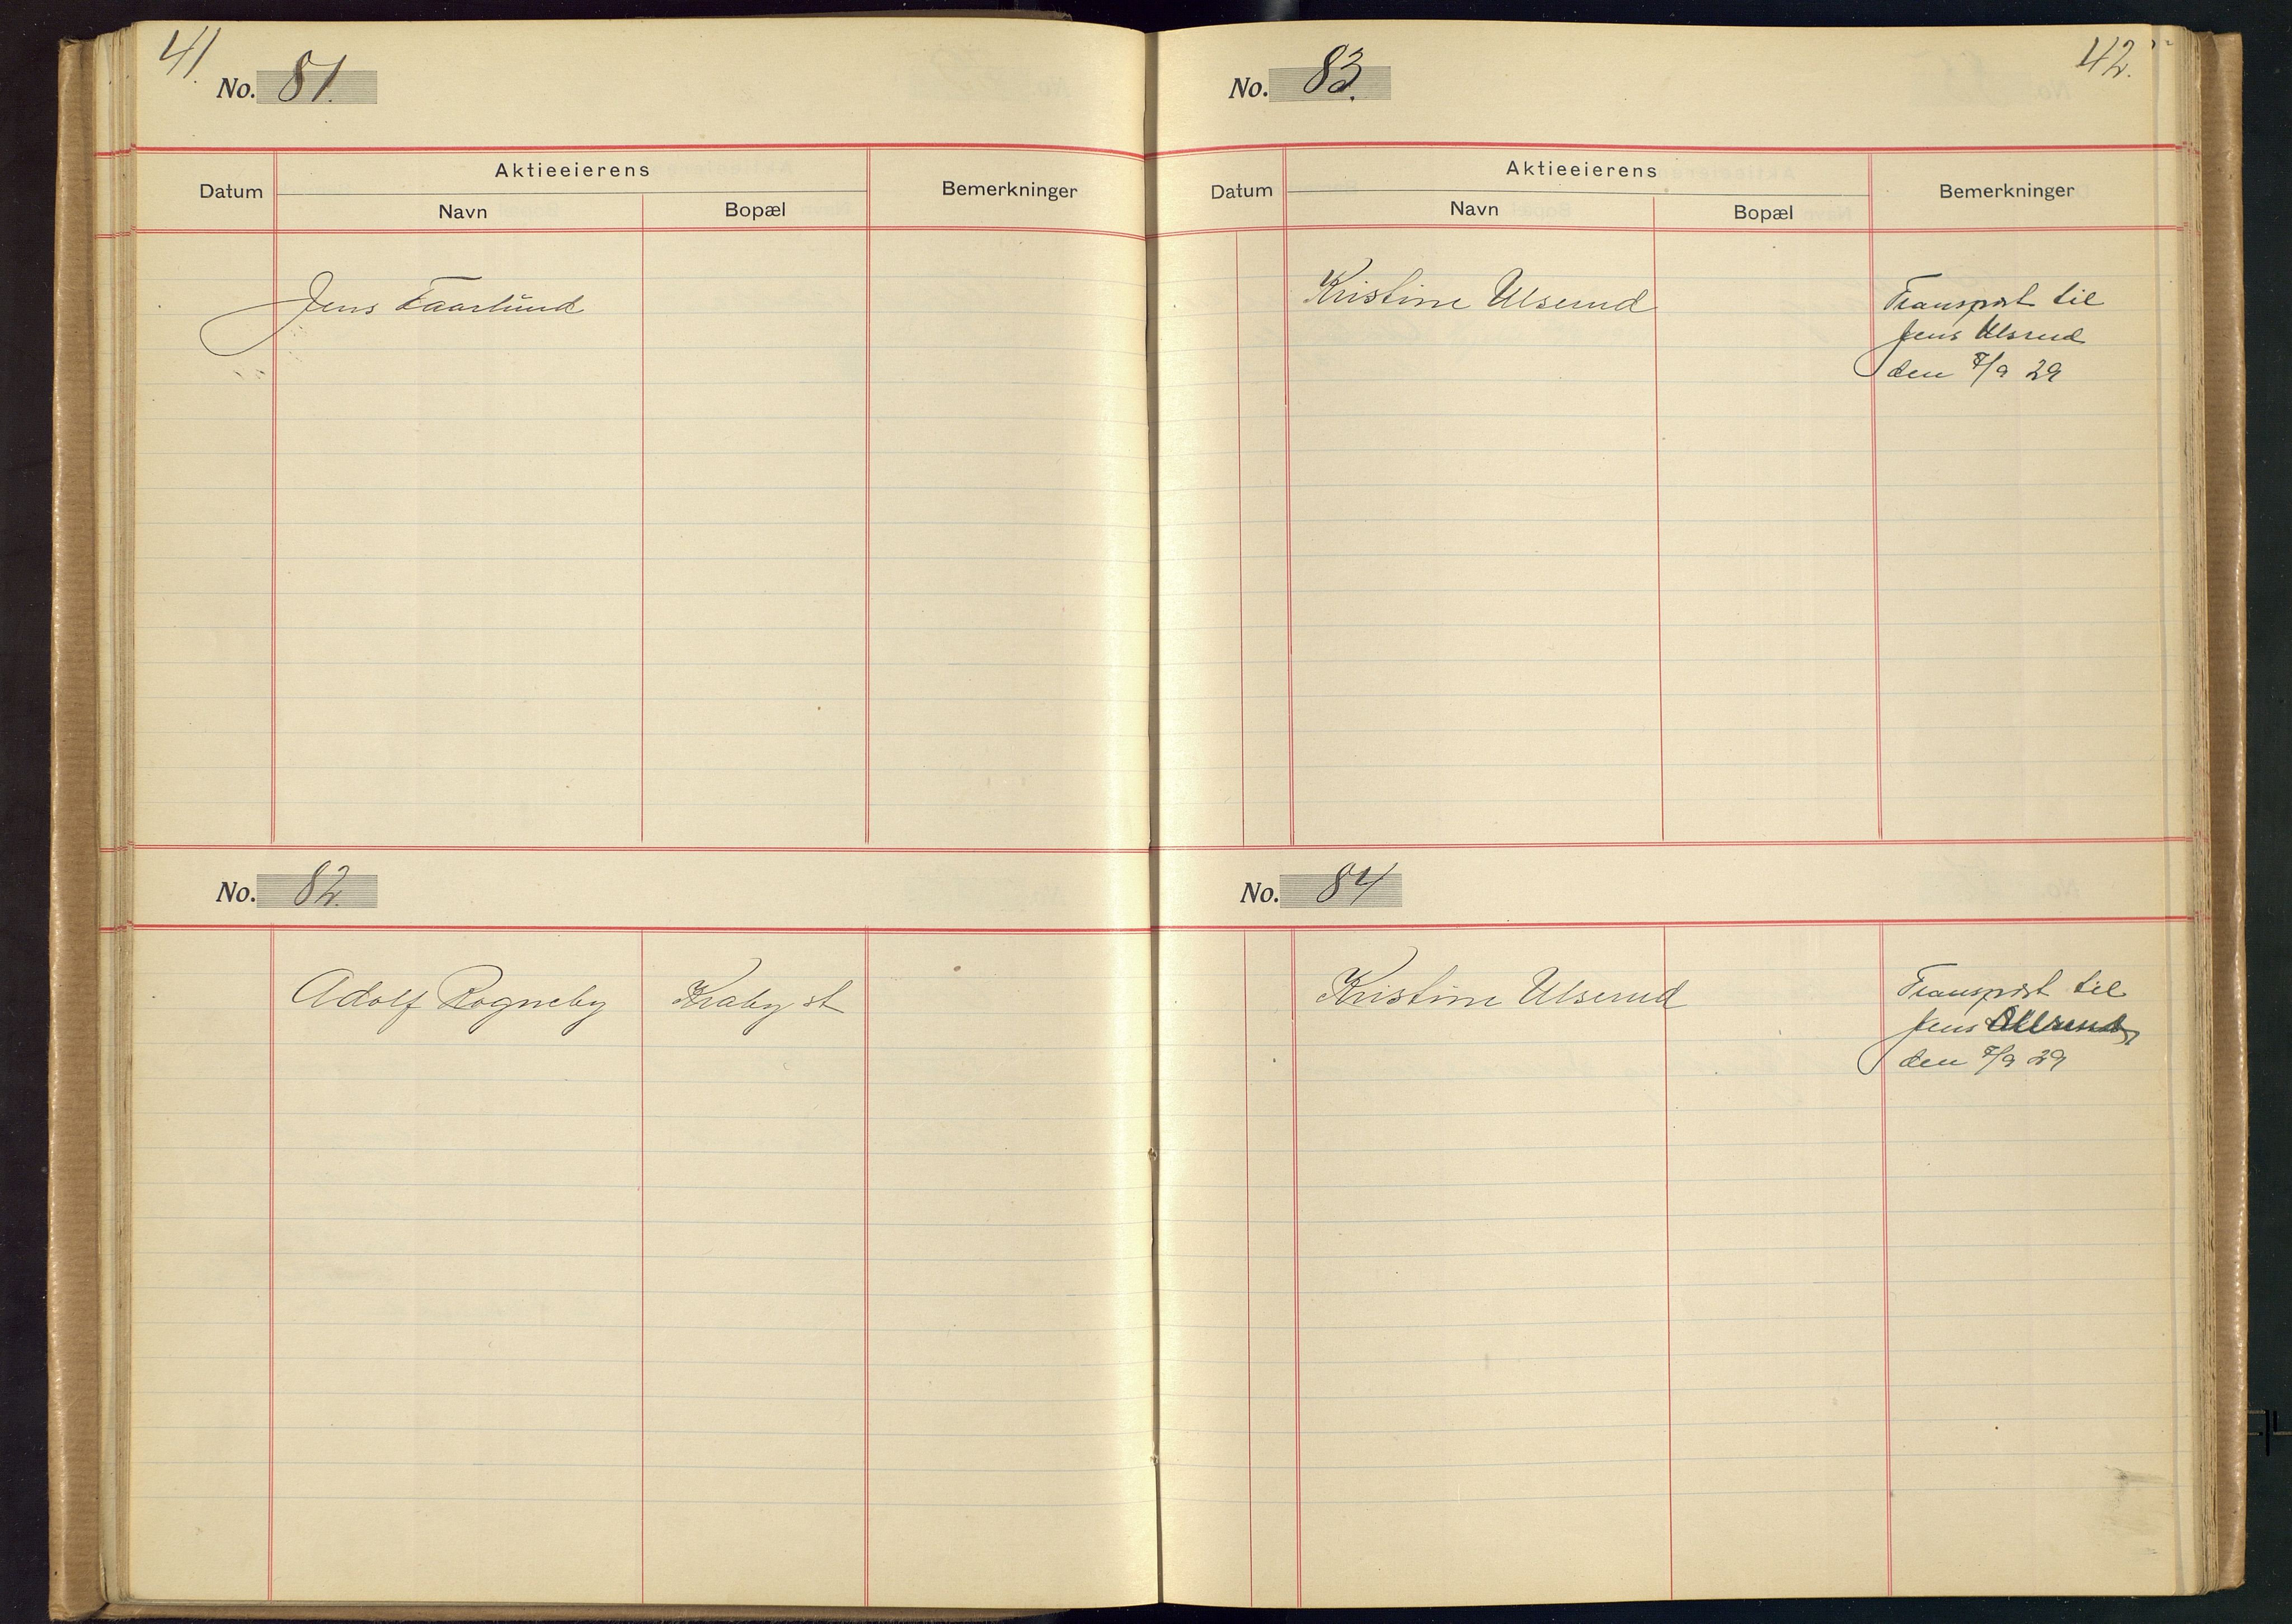 41.
No. 81.
Aktieeierens
Datum Navn Bopæl Bemerkninger
Jens Faarlund
No. 82.
Adolf Rogneby Kraby st
42.
No. 83.
Aktieeierens
Datum Navn Bopæl Bemerkninger
Kristine Ulsrud Transport til
Jens Ulsrud
den 7/9 29
No. 84
Kristine Ulsrud Transport til
Jens Ulsrud
den 7/9 29